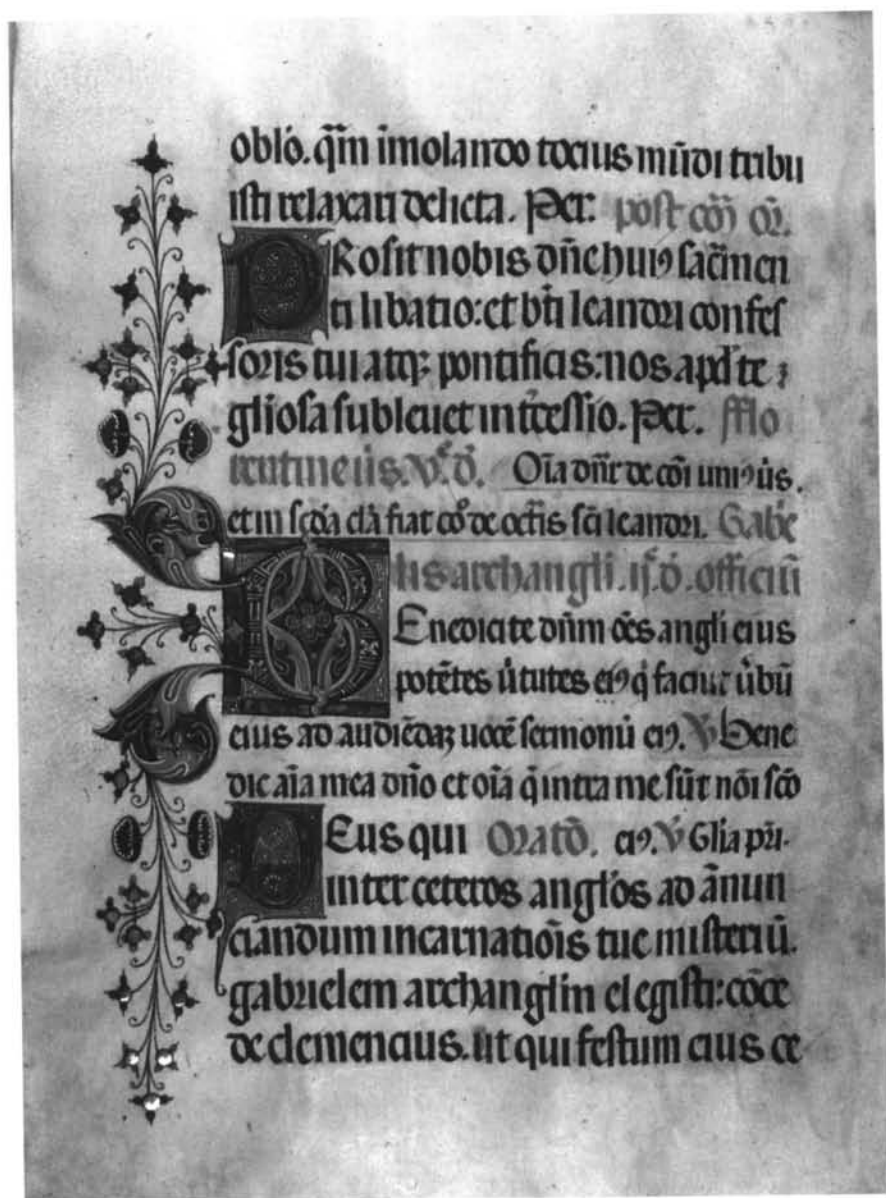 oblo. q̄m īmolando tocius mūdi tribu
isti relaxari delicta. Per. post cōū or̄.
PRosit nobis dn̄e huiꝰ sac̄men
ti libatio: et bt̄i leandri confes
soris tui atqꝫ pontificis: nos apd̓ te
gl̄iosa subleuet int̄cessio. Per. fflo
rentine ū̓is. v̓. d̓. Oīa dn̄r de cōi uniꝰ ū̓is.
et in sc̄da cl̄a fiat cō̓ de oct̄is sc̄i leandri. Gabe
lis archangli. ij. d̓. officiū
BEnedicite dn̄m ōēs angl̄i eius
potētes ū̓tutes eiꝰ q̓ faciūt ū̓bū
eius ad audiēdaꝫ uocē sermonū eiꝰ. V̓ Bene
dic aīa mea dn̄o et oīa q̄ intra me sūt nōi sc̄o
DEus qui Oratō. eiꝰ. V̓ Gl̄ia pr̄i.
inter ceteros angl̄os ad ānun
ciandum incarnatiōis tue misteriū.
gabrielem archangl̄m elegisti: cōce
de clemencius. ut qui festum eius ce